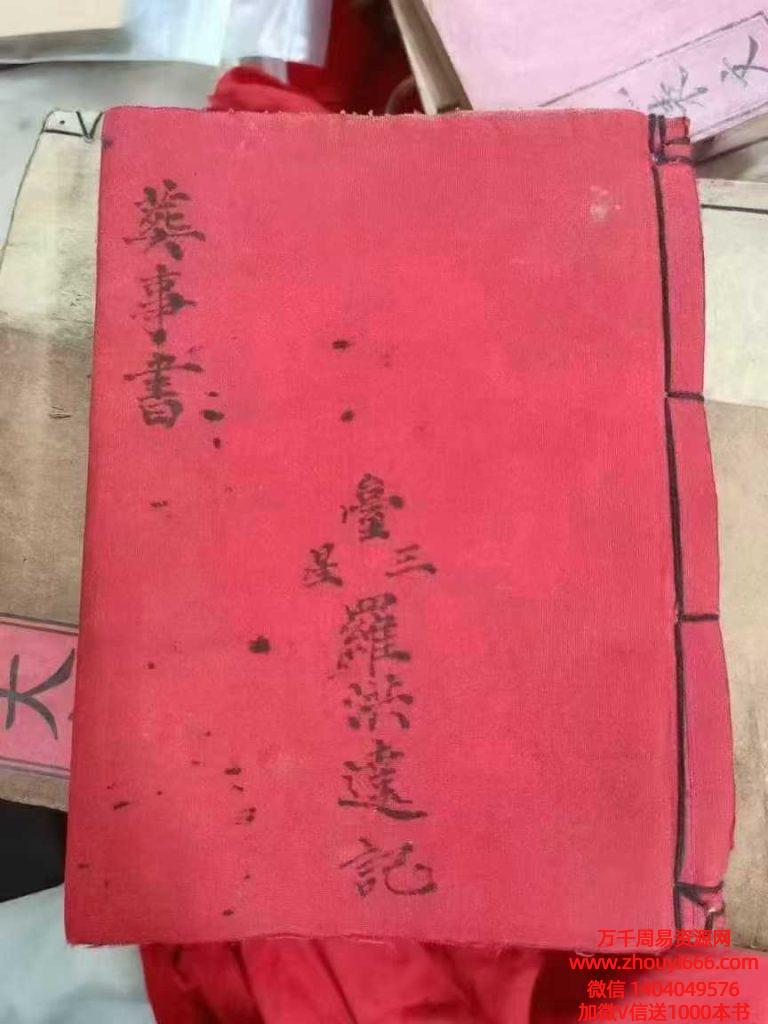 葬事書
臺
三
是
羅洪達記
大
万千周易资源网
www.zhouyi666.com
微信 1404049576
加微V信送1000本书